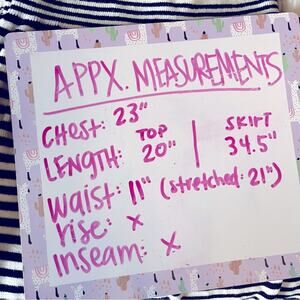 APPX. MEASUREMENTS
CHest: 23"
TOP SKIRT
LENGTH: 20" | 34.5"
Waist: 11" (stretched: 21")
rise: x
inseam: x